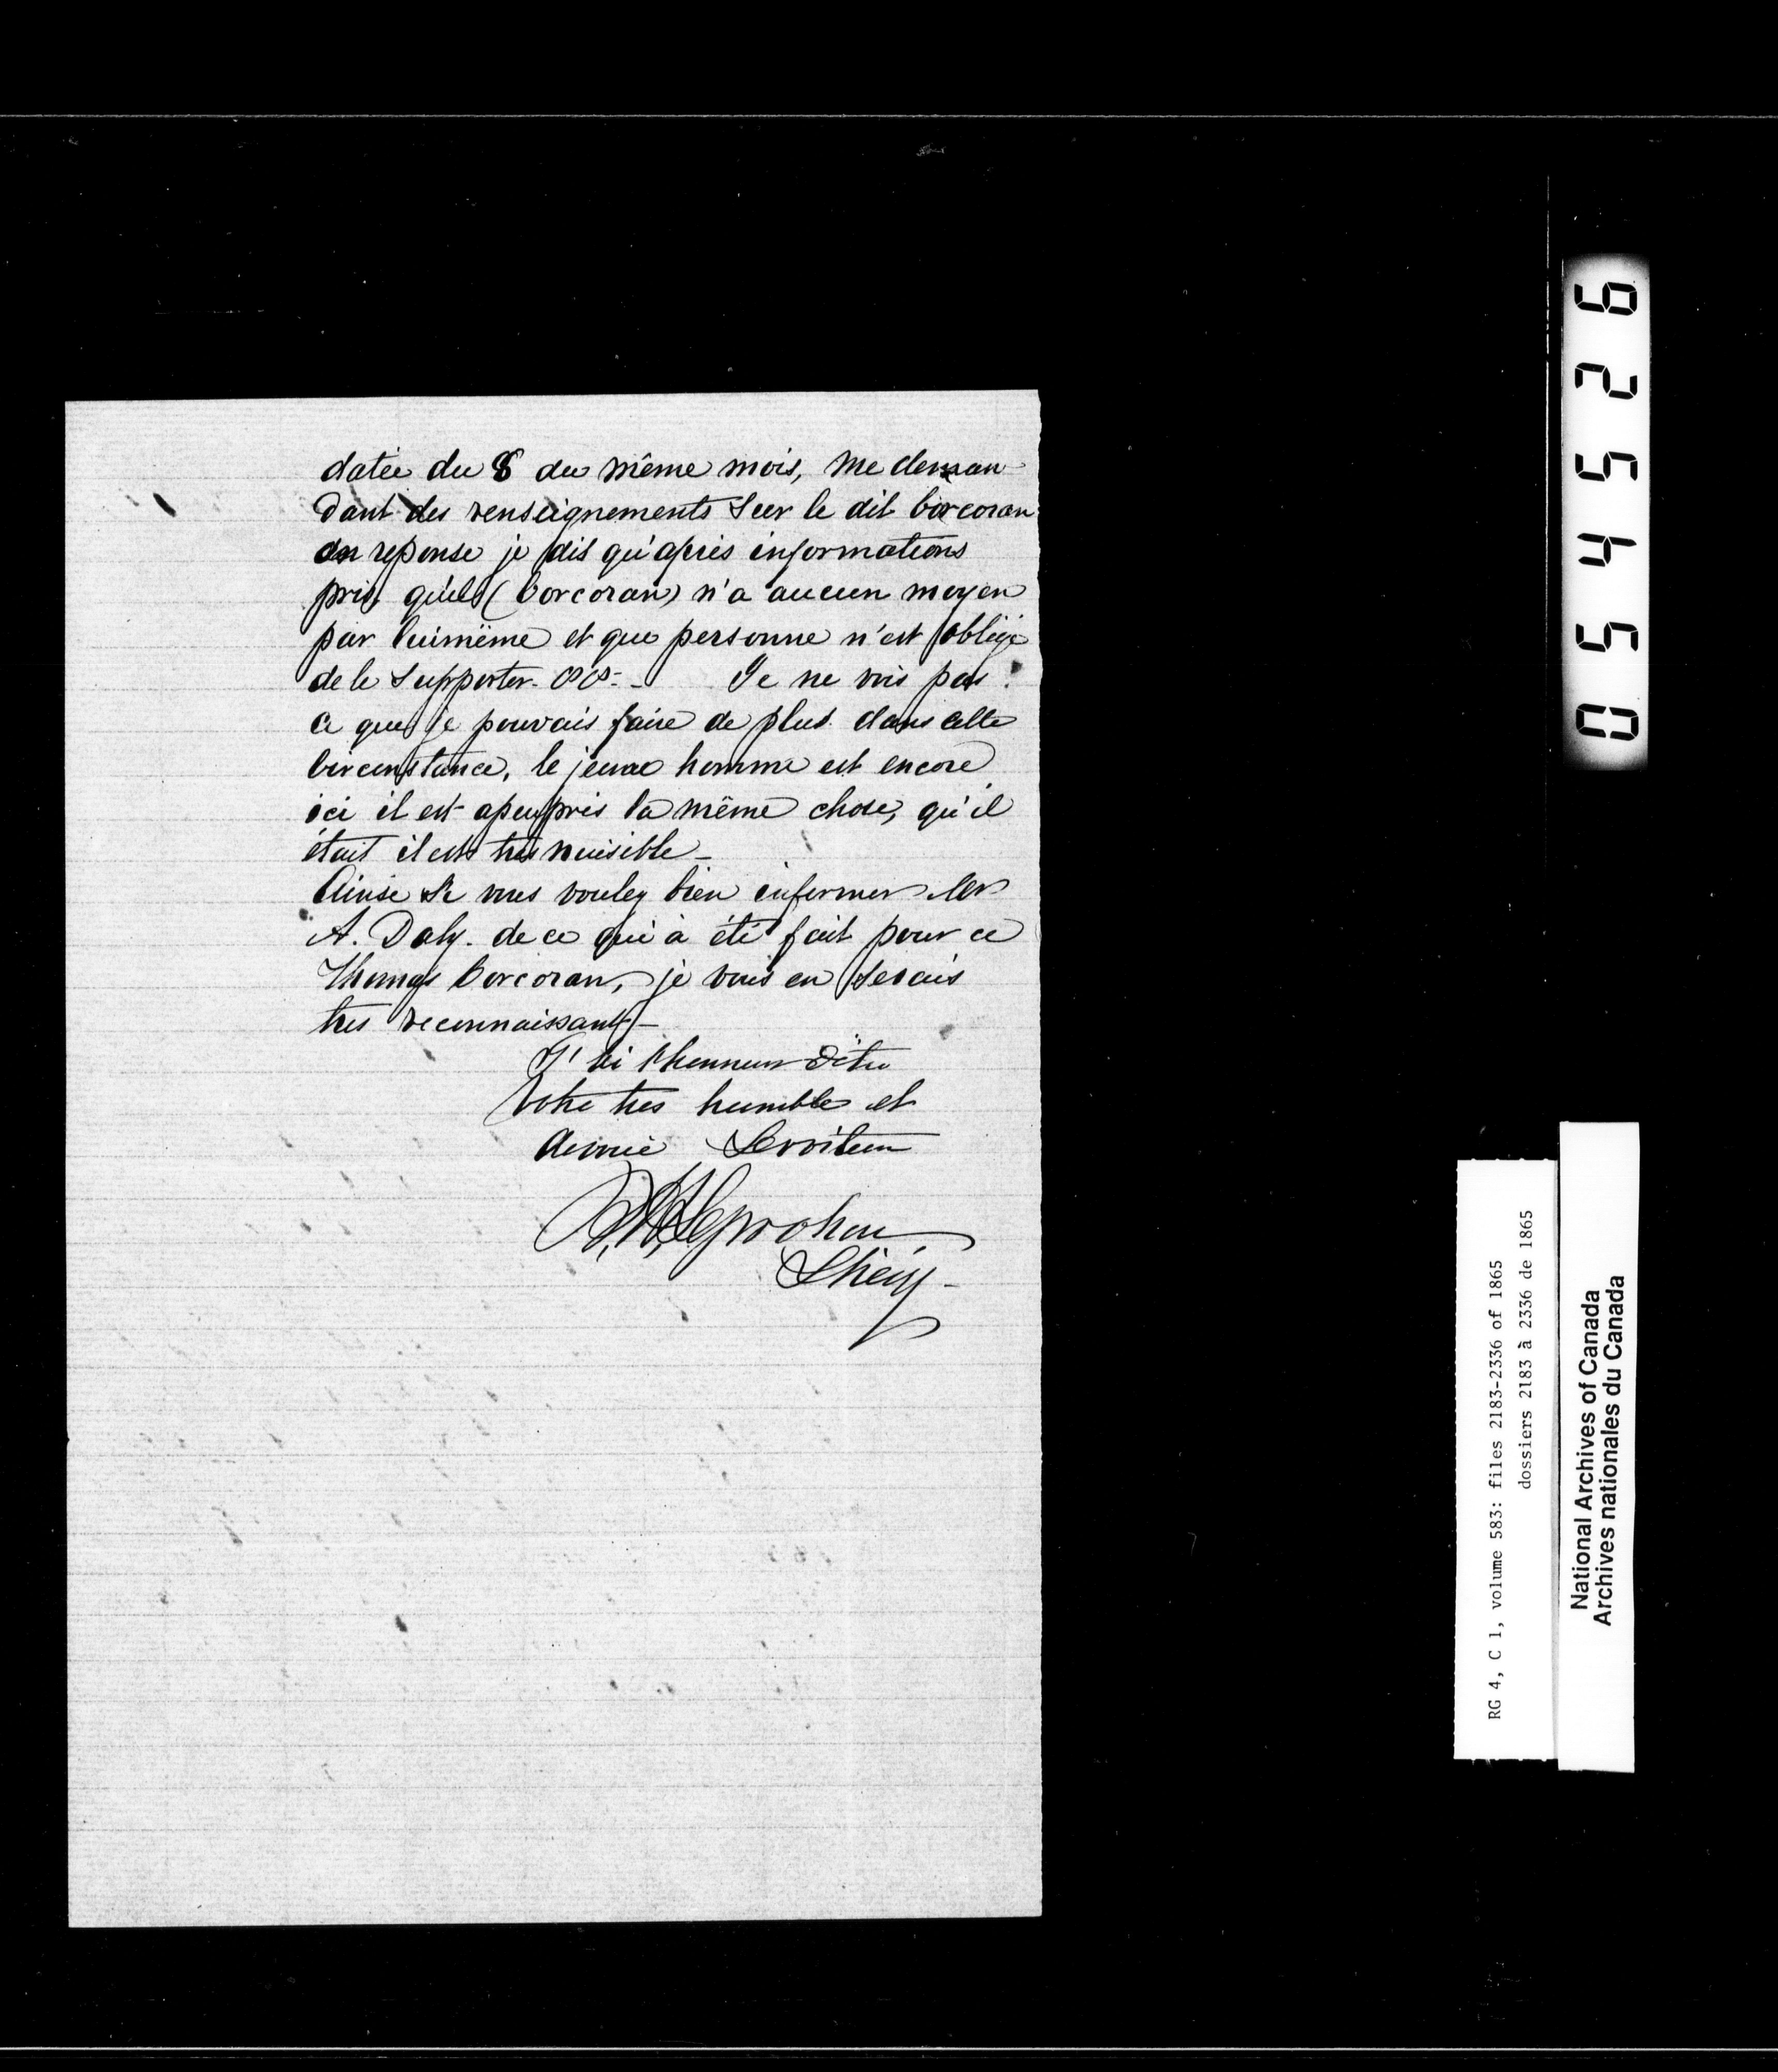 datée du 8 du même mois, me deman
dant des renseignements sur le dit Corcoran
en reponse je dis qu'après informations
pris, qu'il (Corcoran) n'a aucun moyen
par luimême et que personne n'est obligé
de le supporter. Je ne vois pas
ce que je pouvais faire de plus dans cette
Circonstance, le jeune homme est encore
ici il est apeuprès la même chose, qu'il
était il est très nuisible_
Ainsi si vous voulez bien informer Mr
A. Daly. de ce qui à été fait pour ce
Thomas Corcoran, je vous en serais
très reconnaissant_
J'ai l'honneur d'être
Votre très humble et
devoué Serviteur
Leprohon
Shérif
054526
RG 4, C 1, volume 583: files 2183-2336 of 1865
dossiers 2183 à 2336 de 1865
National Archives of Canada
Archives nationales du Canada